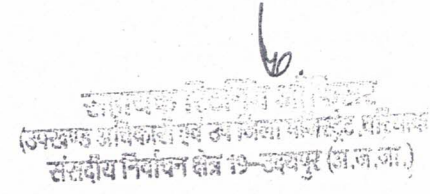 सहायक रिटर्निंग ऑफिसर
(उपखण्ड अधिकारी एवं उप जिला मजिस्ट्रेट,
संसदीय निर्वाचन क्षेत्र 19-उदयपुर (अ.ज.जा.)